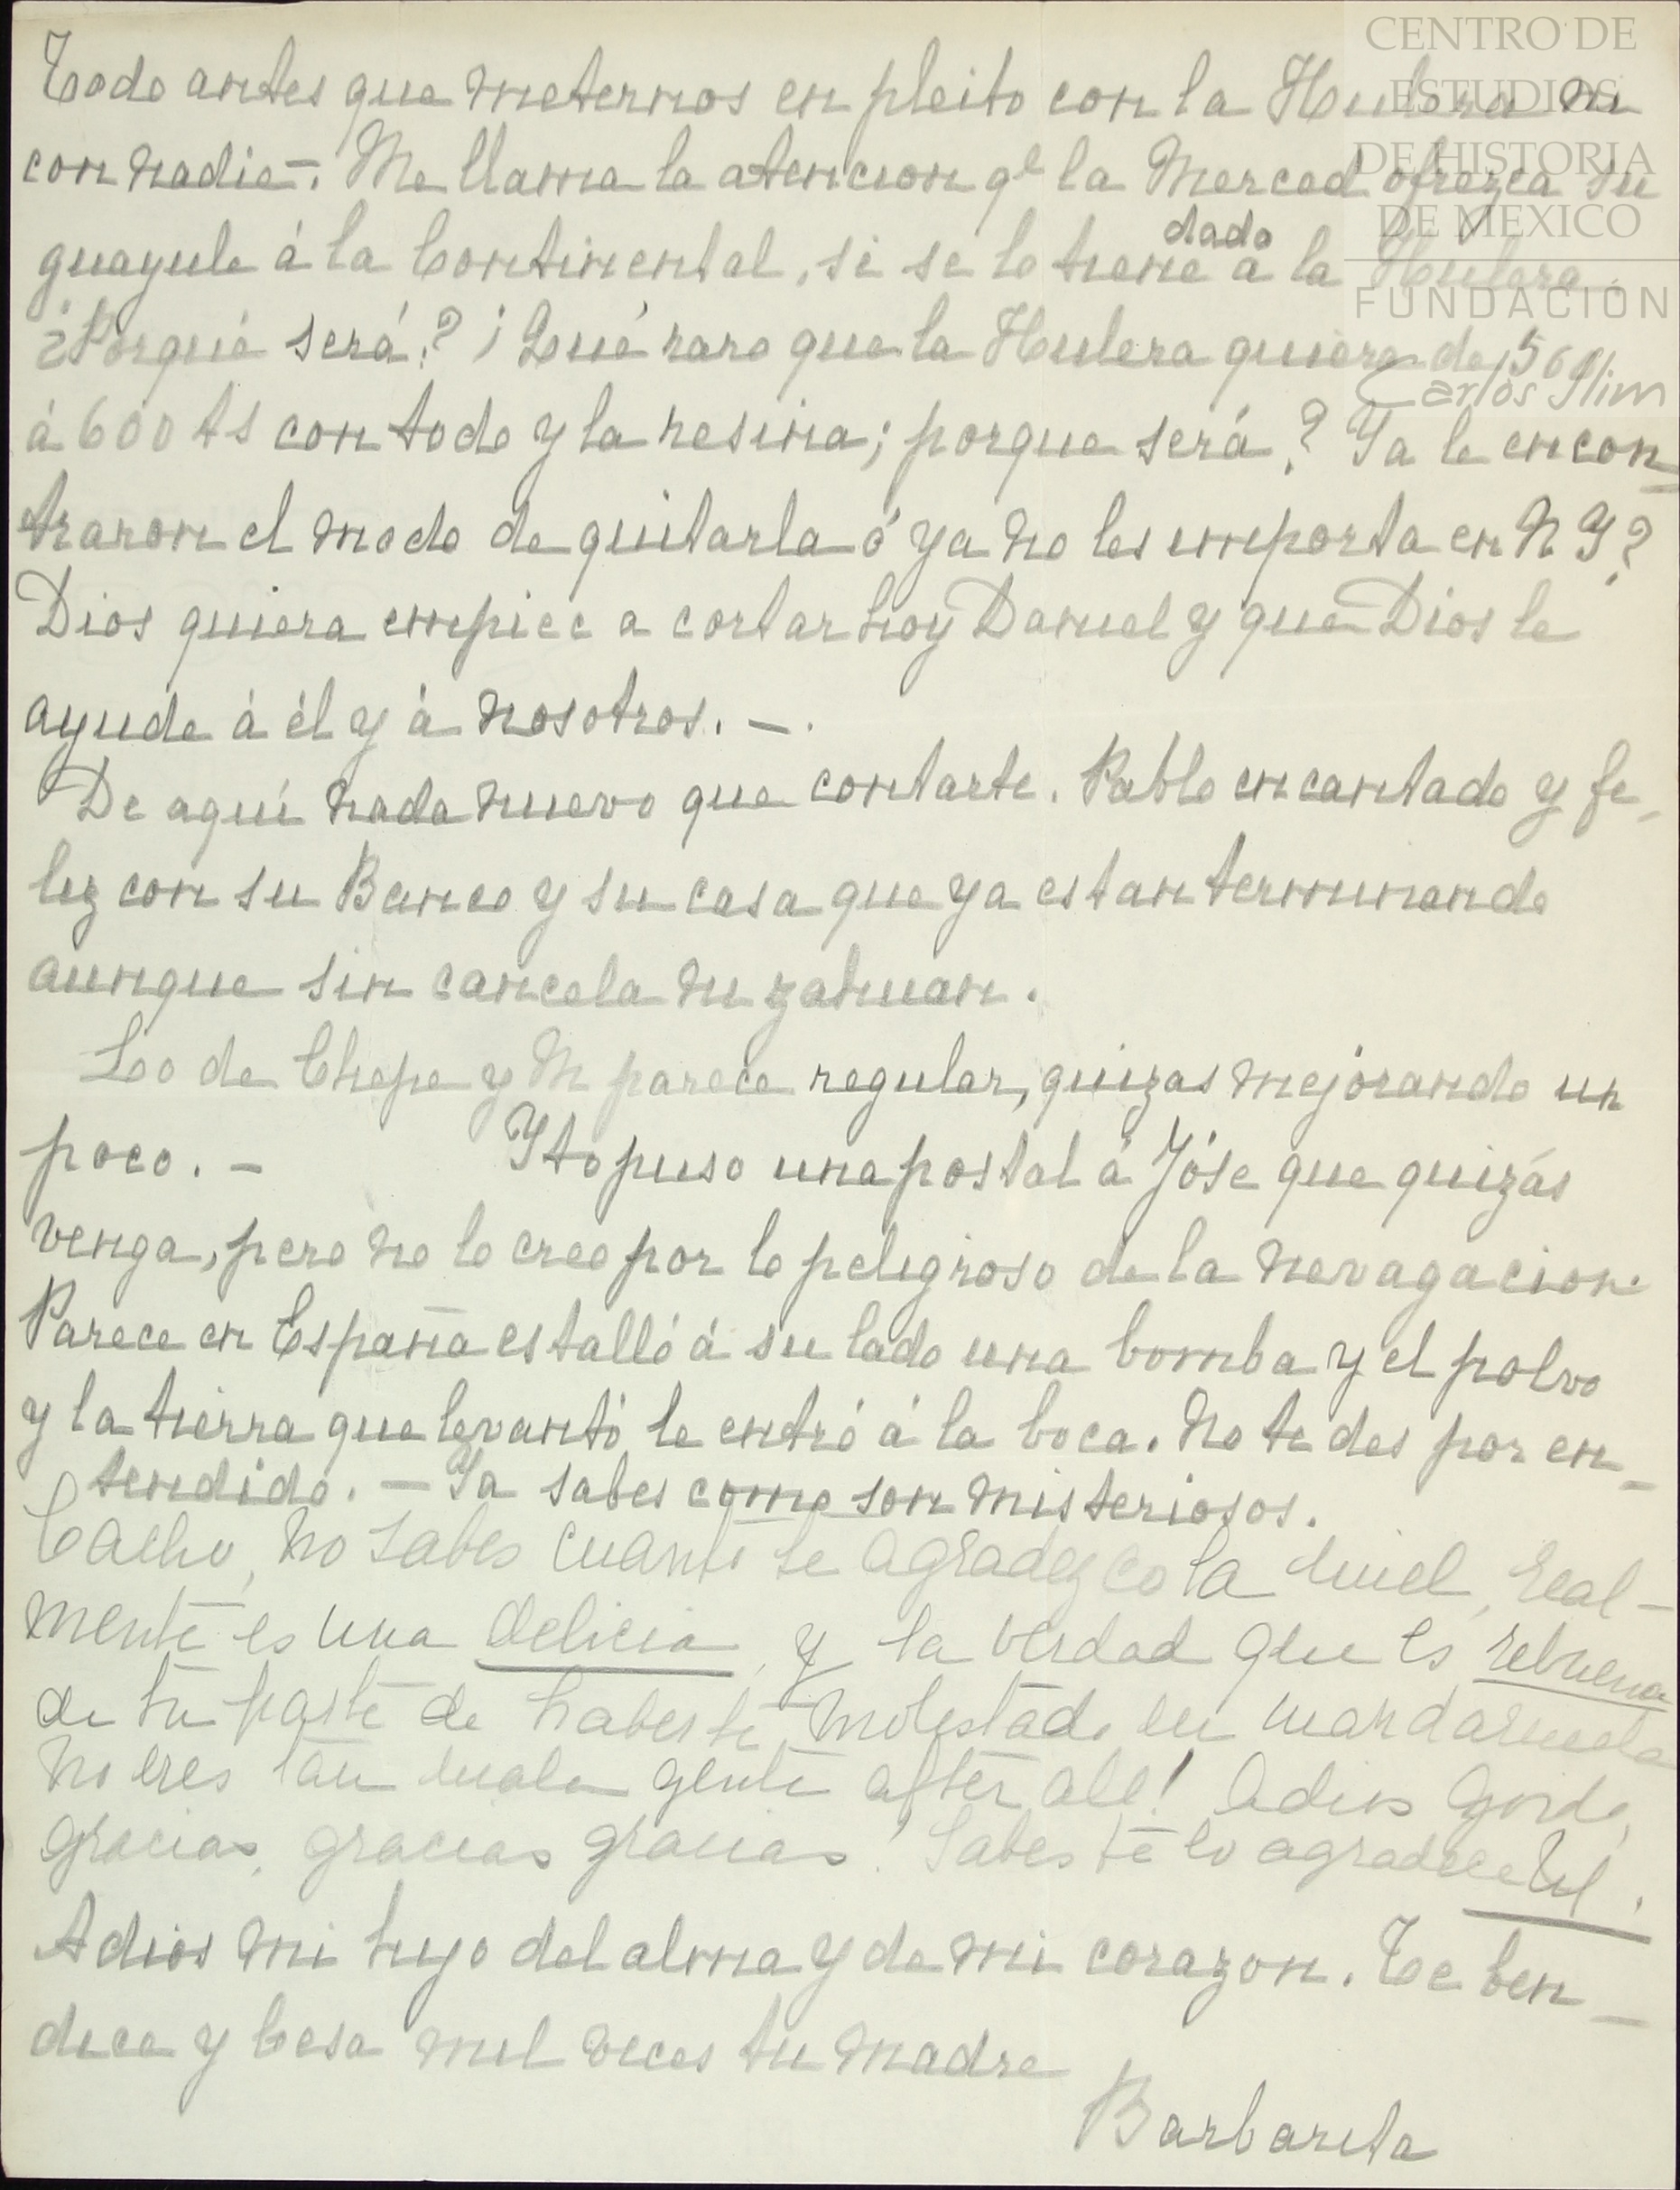 CENTRO DE
ESTUDIOS
DE HISTORIA
DE MEXICO
FUNDACIÓN
Carlos Slim
Todo antes que meternos en pleito con la Hulera ni
con nadie.- Me llama la atencion qe la Merced ofrezca su
guayule á la Continental, si se lo tiene dado a la Hulera.
¿Porqué será? ¡Qué raro que la Hulera quiera de 500
á 600 ts con todo y la resina; porque será? Ya le encon
traron el modo de quitarla ó ya no les importa en N Y?
Dios quiera empiece a cortar hoy Daniel y que Dios le
ayude á él y á nosotros. -.
De aquí nada nuevo que contarte. Pablo encantado y fe-
liz con su Banco y su casa que ya estan terminando
aunque sin cancela ni zahuan.
Lo de Chepe y M parece regular, quizas mejorando un
poco. - Yto puso una postal á Jóse que quizás
venga, pero no lo creo por lo peligroso de la navagacion.
Parece en España estalló á su lado una bomba y el polvo
y la tierra que levantó le entró á la boca. No te des por en-
tendido. - Ya sabes como son misteriosos.
no sabes cuanto te agradezco la miel, real-
mente es una delicia, y la verdad que es rebuena
de tu parte de haberte molestado en mandarmela
no eres tan mala gente after all! Adios Gordo,
gracias, gracias gracias! Sabes te lo agradece
Adios mi hijo del alma y de mi corazon. Te ben-
dice y besa mil veces tu madre
Barbarita